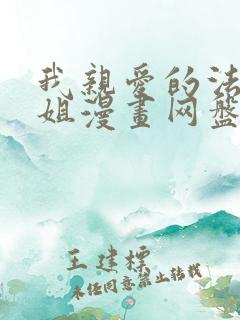 我親愛的法
姐漫畫网盤
王建標
未经同意禁止转载